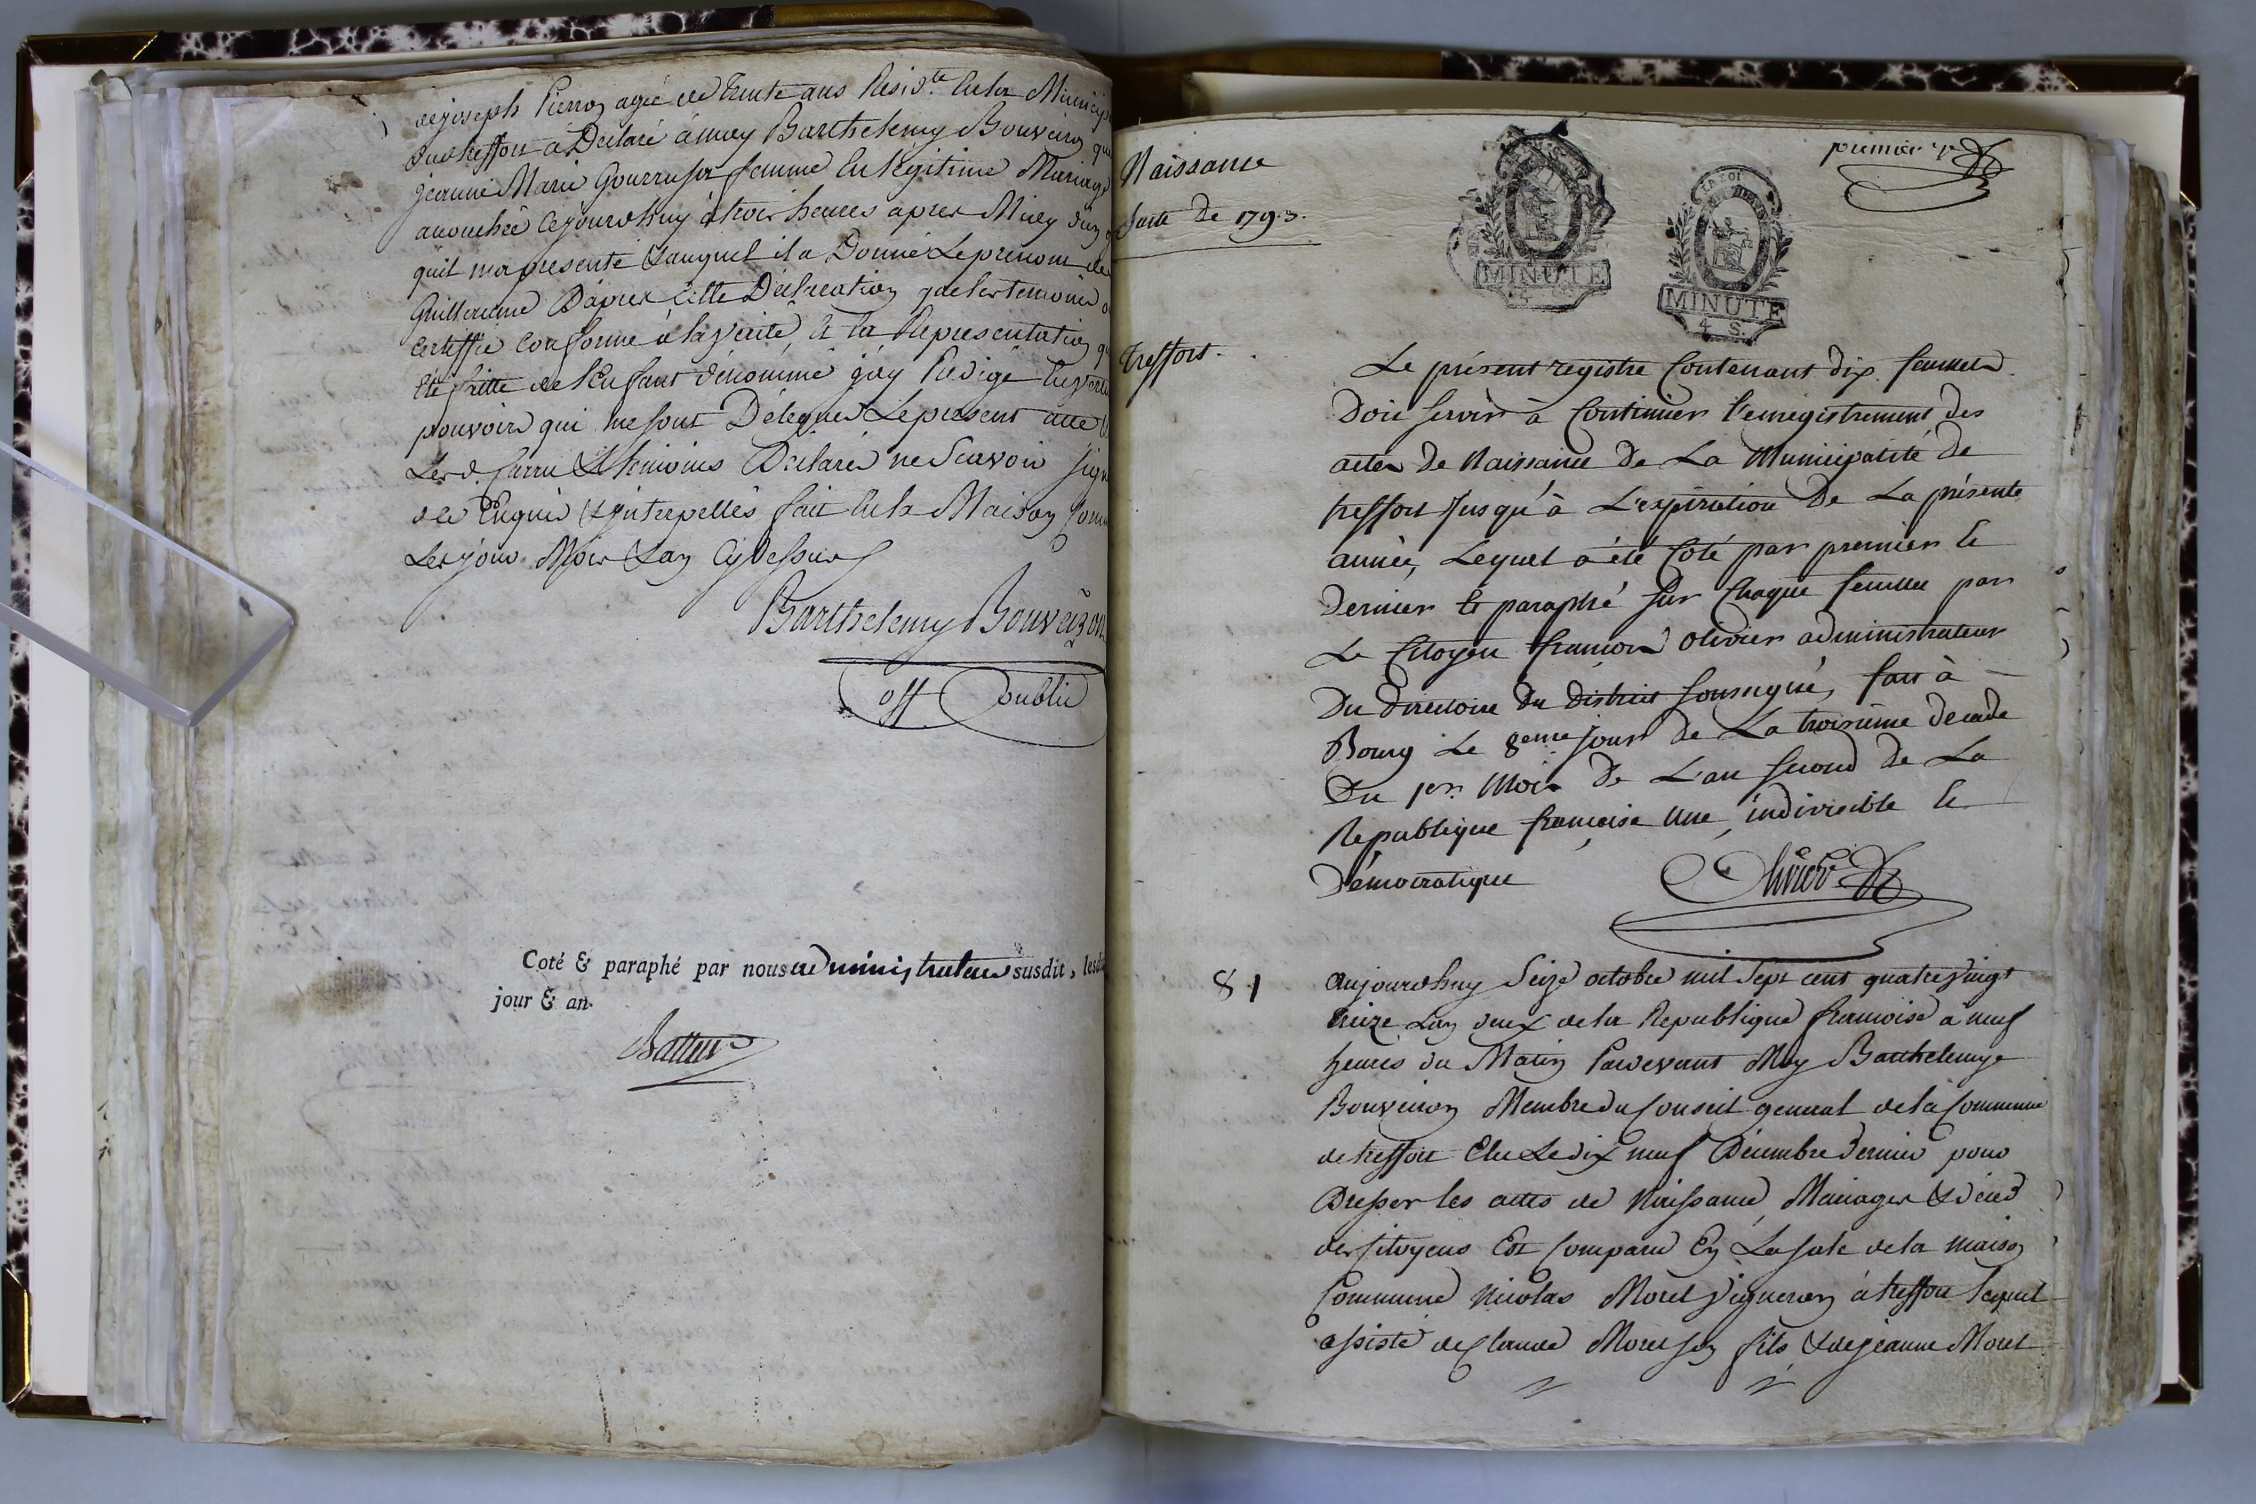 de joseph Pierron agée de trente ans Resid.te En la Municip
du treffort a Déclaré à moy Barthelemy Bouveiron qu
jeanne Marie Gourru sa femme En légitime Mariage
accouchée Cejourdhuy à trois heures après Midy d'un
quil ma présenté & auquel il a Donné Le prenom de
Guillaume D'après Cette Déclaration que les temoins
Certiffie Conforme à la vérité, & la Representation qu
Eté faitte de l'Enfant dénommé j'ay Rédigé En vertu
pouvoirs qui me sont Délégués Le présent acte
Les d. & témoins Déclarés ne Scavoir sign
de Enquis & interpellés fait En la Maison Comm
Les jour Mois & an Cy Dessus
Barthelemy Bouveiron
off public
Coté & paraphé par nous administrateur susdit, lesd
jour & an.
Naissance
Suite De 1793.
premier
MINUTE
MINUTE
4. S.
treffort.
Le présent registre Contenant dix feuillets
Doit servir à Continuer l'enregistrement des
actes De Naissance De La Municipalité de
treffort Jusqu'à L'expiration De La présente
année, Lequel a été Coté par premier Et
Dernier Et paraphé sur Chaque feuillet par
Le Citoyen françois Olivier administrateur
Du Directoire Du District soussigné, fait à
Bourg Le 8eme Jour De La troisième Decade
Du 1er. Mois De L'an second De La
Republique françoise Une, indivisible Et
Démocratique
Olivier
81
aujourdhuy Seize octobre mil Sept cent quatre vingt
treize L'an deux de la Republique françoise a neuf
heures du Matin Pardevant Moy Barthelemy
Bouveiron Membre du Conseil general de la Commune
de treffort Elu Le dix neuf Décembre dernier pour
Dresser les actes de Naissance, Mariages & décès
des Citoyens Est Comparu En La sale de la maison
Commune Nicolas Morel Vigneron à treffort lequel
assisté de Claude Morel son fils & de jeanne Morel